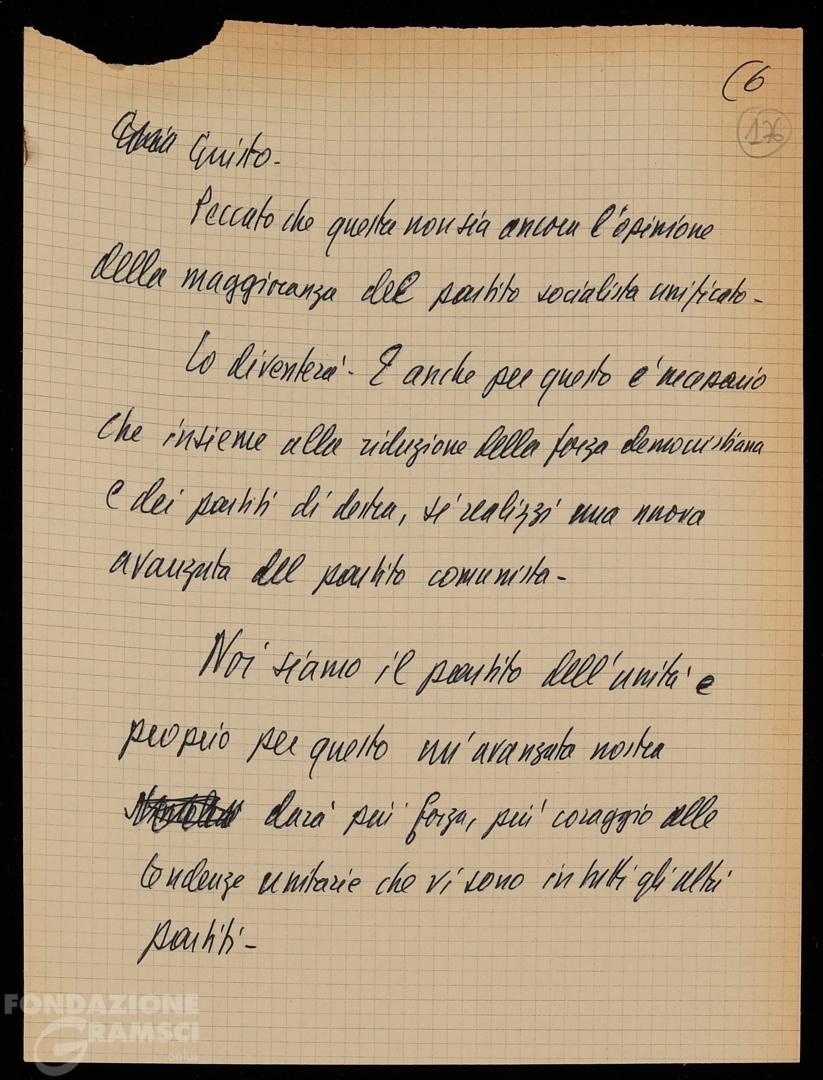 (6
176
Giusto.
Peccato che questa non sia ancora l'opinione
della maggioranza del partito socialista unificato.
Lo diventerà. E anche per questo è necessario
che insieme alla riduzione della forza democristiana
e dei partiti di destra, si realizzi una nuova
avanzata del partito comunista.
Noi siamo il partito dell'unità e
proprio per questo un'avanzata nostra
darà più forza, più coraggio alle
tendenze unitarie che vi sono in tutti gli altri
partiti.
FONDAZIONE
GRAMSCI
onlus